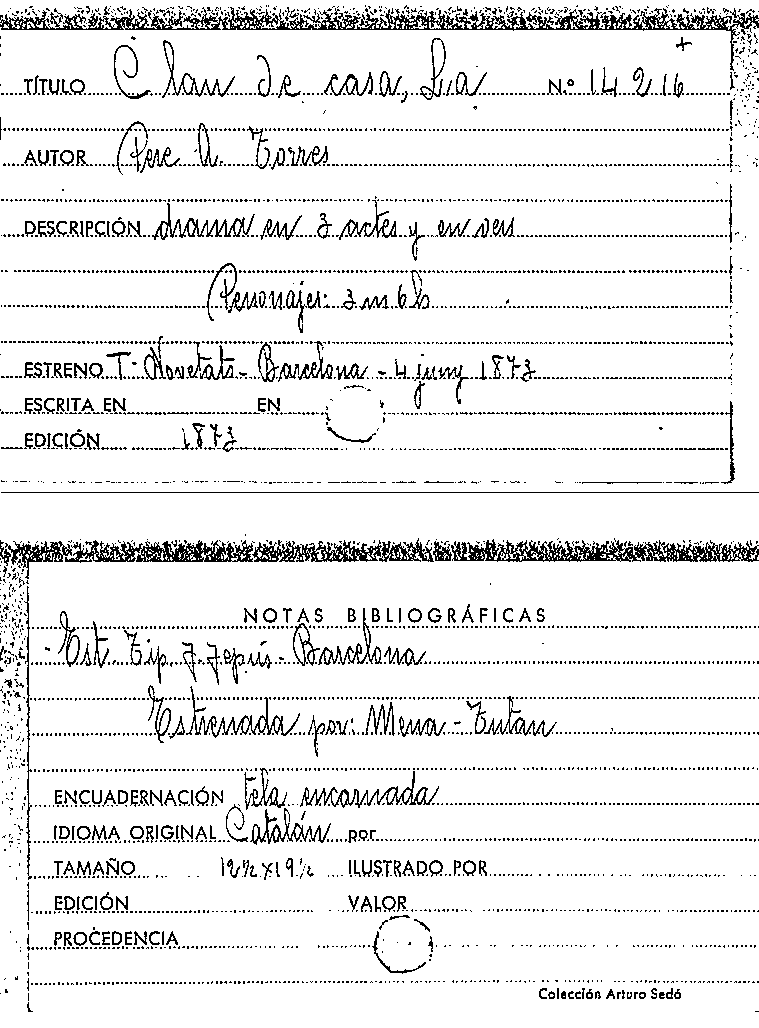 +
TÍTULO Clau de casa, La N.º 14216
AUTOR Pere A. Torres
DESCRIPCIÓN drama en 3 actes y en vers
Personajes: 3 m 6 h
ESTRENO T. Novetats - Barcelona - 4 juny 1873
ESCRITA EN EN
EDICIÓN 1873
NOTAS BIBLIOGRÁFICAS
Est. Tip. J. Jepús - Barcelona
Estrenada por: Mena - Tutau
ENCUADERNACIÓN tela encarnada
IDIOMA ORIGINAL Catalán por
TAMAÑO 12½ x 19½ ILUSTRADO POR
EDICIÓN VALOR
PROCEDENCIA
Colección Arturo Sedó